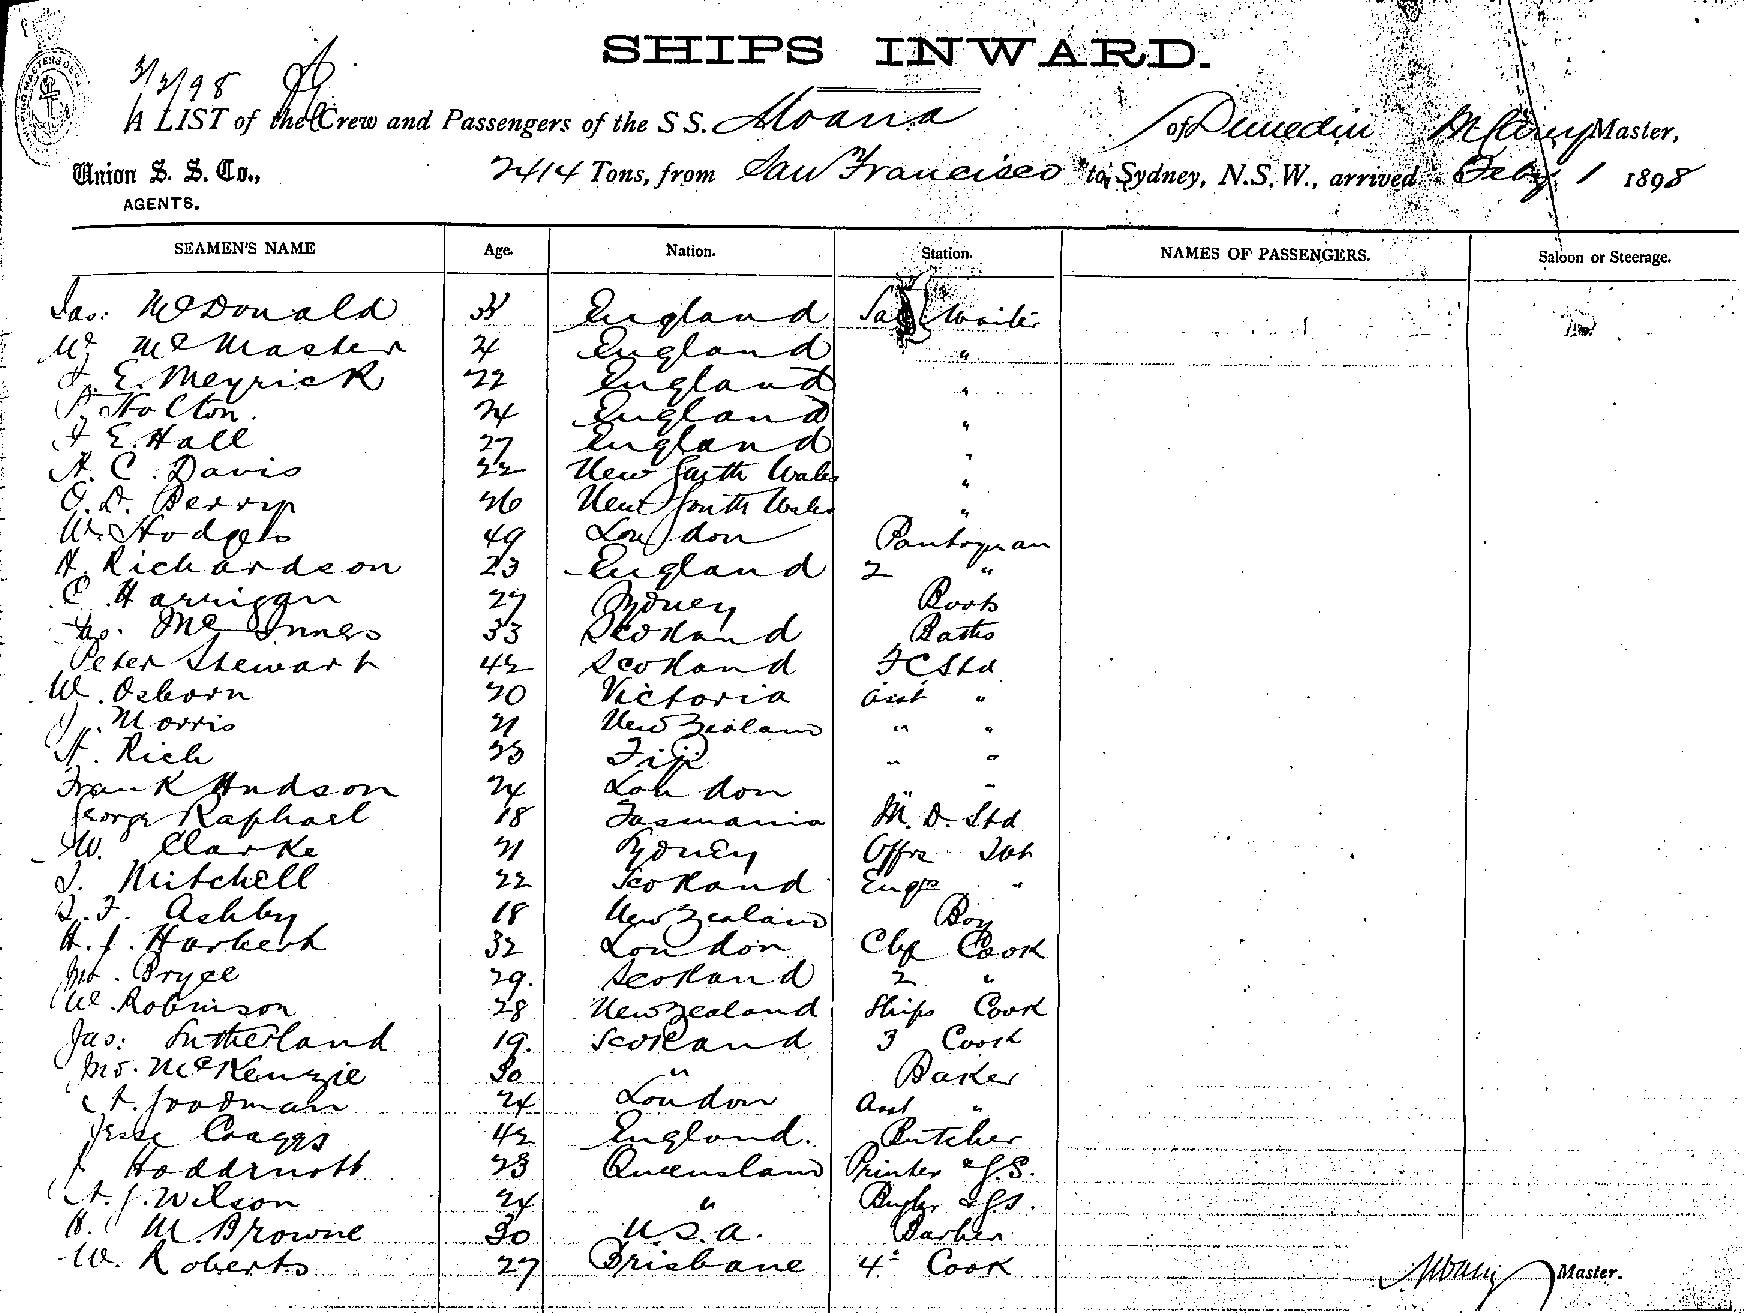 SHIPS INWARD.
3/2/98
A LIST of the Crew and Passengers of the S S. Moana of Dunedin M Carey Master,
Union S. S. Co., 2414 Tons, from San Francisco to Sydney, N.S.W., arrived Feby 1 1898
AGENTS.
SEAMEN'S NAME Age. Nation. Station. NAMES OF PASSENGERS. Saloon or Steerage.
Jas: McDonald 33 England Sal Waiter
W McMaster 21 England "
E. Meyrick 22 England "
Holton. 24 England "
E. Hall 27 England "
A. C. Davis 22 New South Wales "
O. D. Berry 26 New South Wales "
W. Hodges 49 London Pantryman
H. Richardson 23 England 2 "
C. Harrigan 27 Sydney Boots
Jas. McInnes 33 Scotland Baths
Peter Stewart 42 Scotland F C Std
W. Osborn 20 Victoria asst "
J. Morris 21 New Zealand " "
A. Rich 23 Fiji " "
Frank Hudson 24 London " "
George Raphael 18 Tasmania M. D. Std
W. Clarke 21 Sydney Offrs
J. Mitchell 22 Scotland Engrs "
F. Ashby 18 New Zealand Boy
H. J. Harbert 32 London Chf Cook
Jno. Bryce 29. Scotland 2 "
W. Robinson 28 New Zealand Ships Cook
Jas: Sutherland 19. Scotland 3 Cook
Jno. McKenzie 30 " Baker
A. Goodman 24 London Asst "
Jesse Craggs 42 England. Butcher
J Hoddrnott 23 Queensland Printer & G.S.
A. J. Wilson 24 " Bugler & GS.
M Browne 30 U.S.A. Barber
W. Roberts 27 Brisbane 4 Cook
M Carey Master.